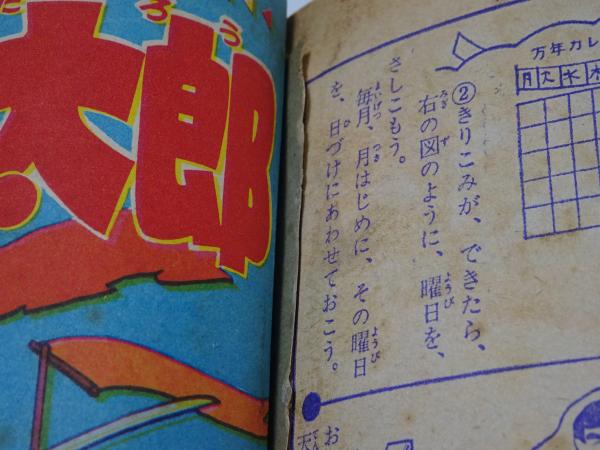 万年カレ
月火水木
②きりこみが、できたら、
右の図のように、曜日を、
さしこもう。
毎月、月はじめに、その曜日
を、日づけにあわせておこう。
たろう
太郎
お
天